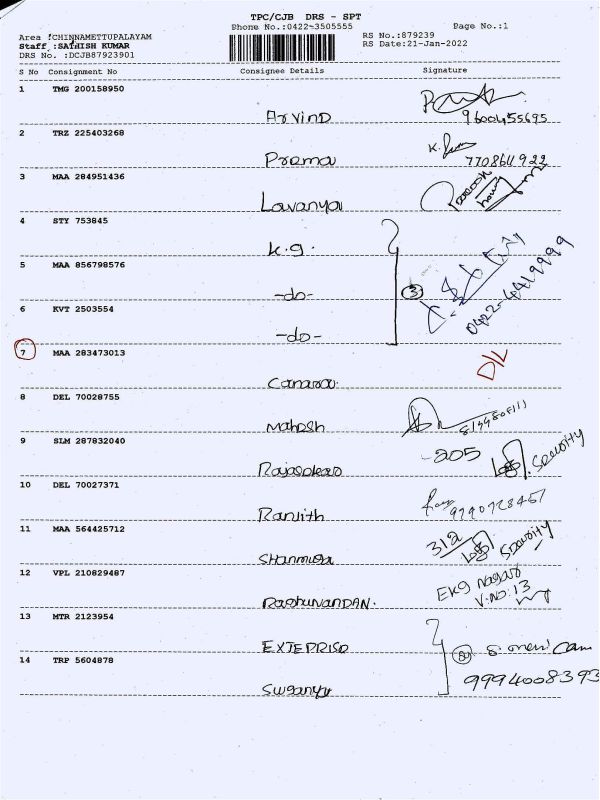 TPC/CJB DRS - SPT
Phone No.:0422-3505555 Page No.:1
Area :CHINNAMETTUPALAYAM RS No.:879239
Staff :SATHISH KUMAR RS Date:21-Jan-2022
DRS No. :DCJB87923901
S No Consignment No Consignee Details Signature
1 TMG 200158950
Arvind 9600455695
2 TRZ 225403268 K.
Prema
3 MAA 284951436
Lavanya
4 STY 753845
K.G.
5 MAA 856798576
-do- 3
0422-4419999
6 KVT 2503554
-do-
7 MAA 283473013 D/L
Canara
8 DEL 70028755
Mahesh
9 SLM 287832040
-205 Security
10 DEL 70027371
Ranjith
11 MAA 564425712
312 Security
Shanmuga
12 VPL 210829487
EKG Nagar
V.NO:13
RaghunanDAN.
13 MTR 2123954
14 TRP 5604878
9994008393